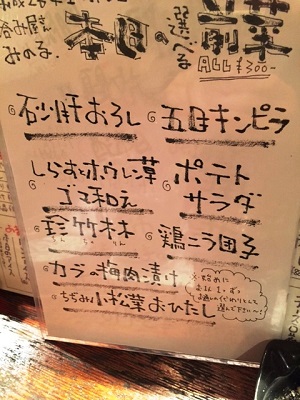 呑み屋さん
みのる
本日の選べる前菜
ALL ¥300-
石少肝おろし
五目キンピラ
しらすとホウレン草
ゴマ和え
ポテト
サラダ
珍竹林
鶏ニラ団子
カブの梅肉漬け
ちぢみ小松菜おひたし
選んで下さい〜!